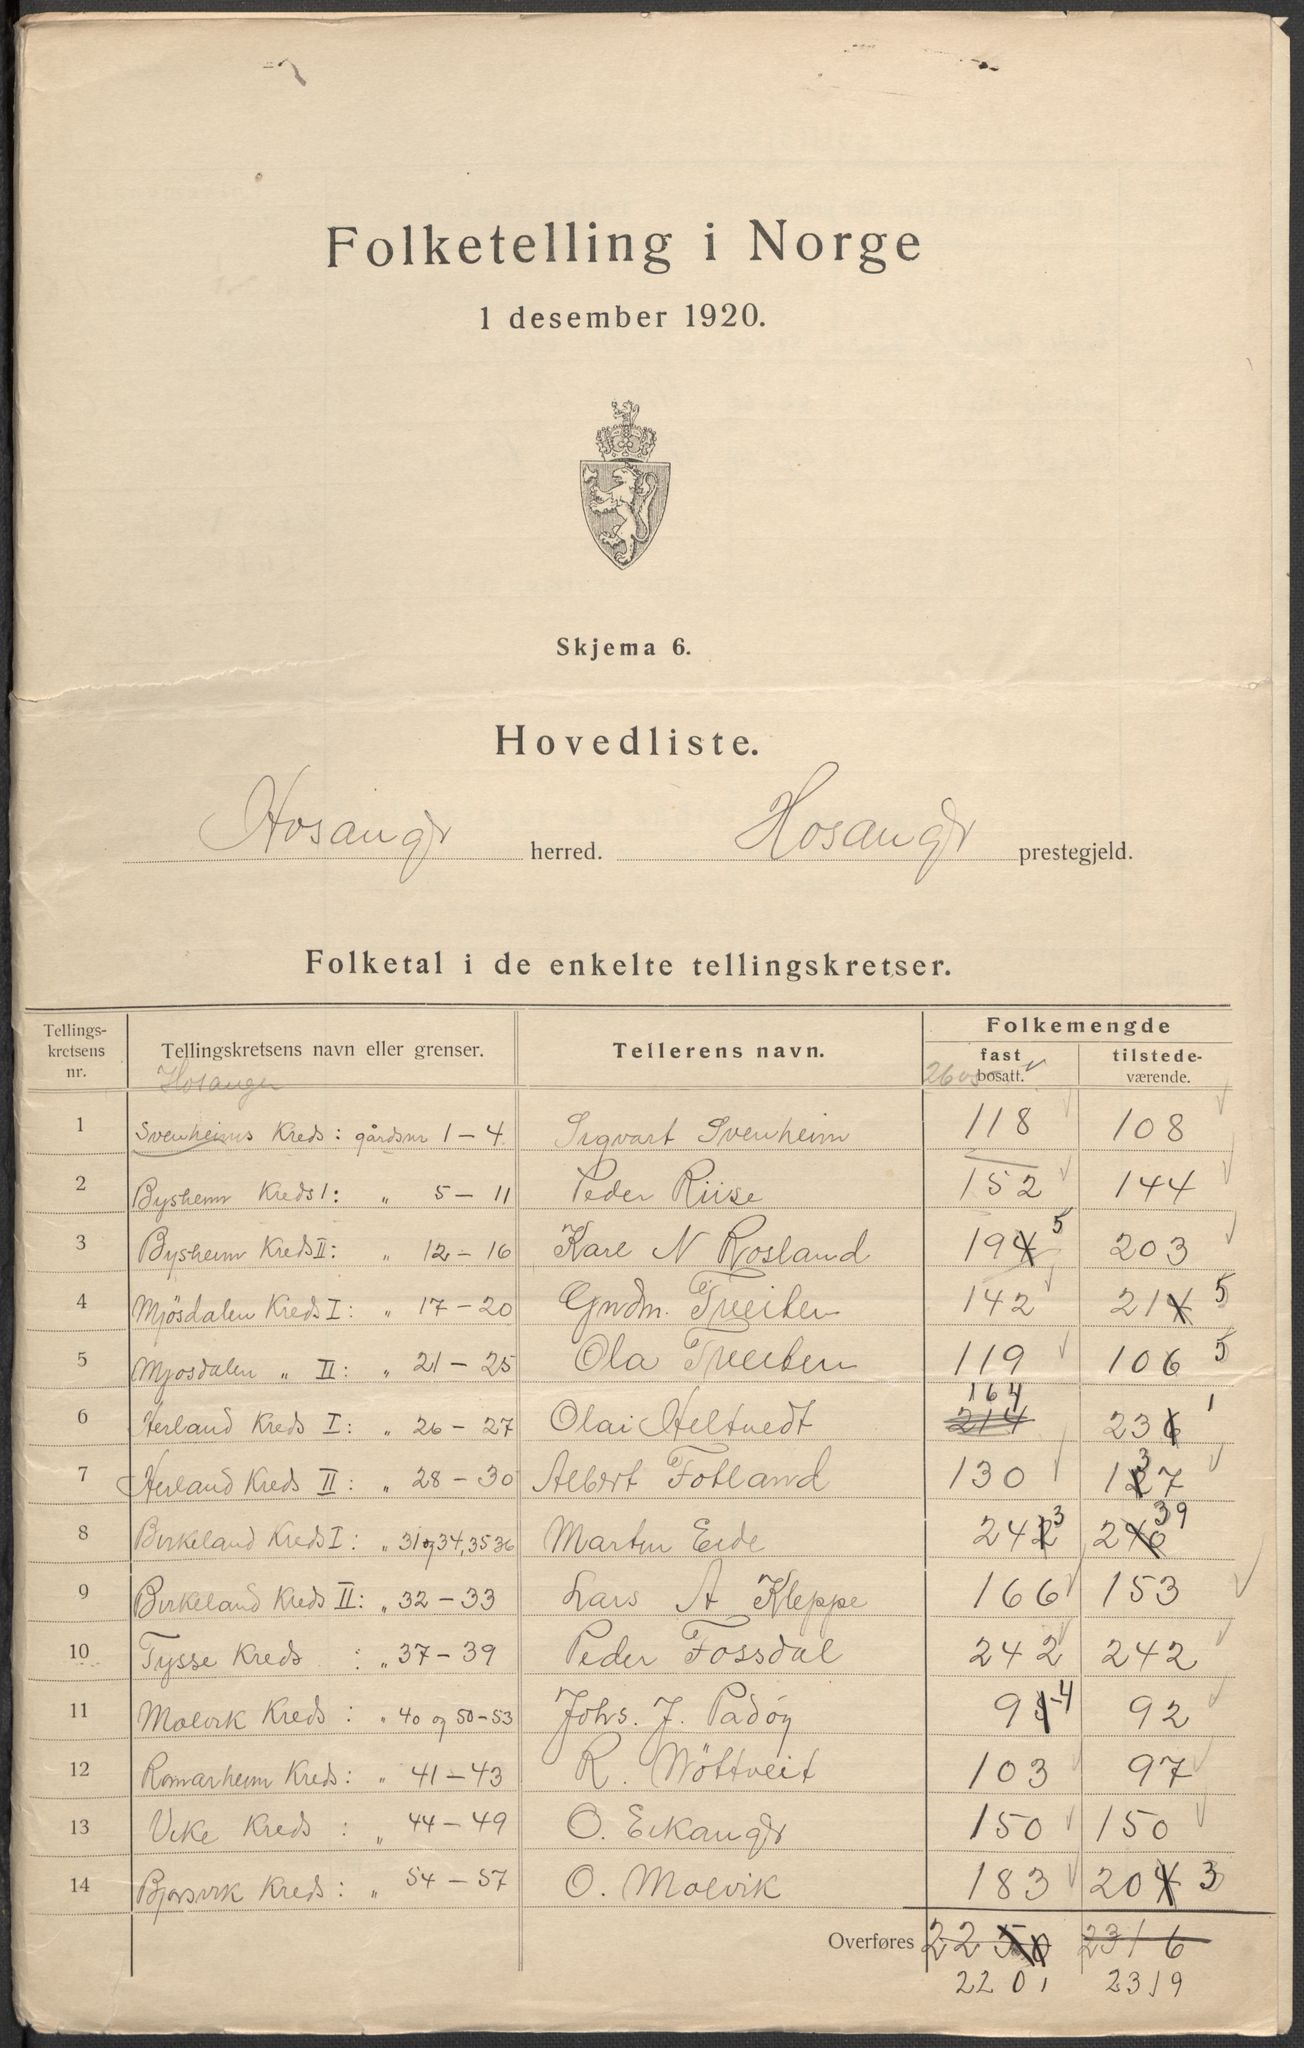 Folketelling i Norge
1 desember 1920.
Skjema 6.
Hovedliste.
Hosangr herred. Hosangr prestegjeld.
Folketal i de enkelte tellingskretser.
Tellings-kretsens nr. Tellingskretsens navn eller grenser. Tellerens navn. Folkemengde
fast bosatt. tilstede-værende.
Hosanger
1 Svenheims Kreds: gårdsnr 1-4. Sigvart Svenheim 118 108
2 Bysheim Kreds I: " 5-11 Peder Riise 152 144
3 Bysheim Kreds II: " 12-16 Karl N Rosland 194 5 203
4 Mjösdalen Kreds I: " 17-20 Gudm. Tveiten 142 214 5
5 Mjosdalen " II: " 21-25 Ola Tveiten 119 106 5
6 Herland Kreds I: " 26-27 Olai Heltvedt 214 164 236 1
7 Herland Kreds II: " 28-30 Albert Fotland 130 127 3
8 Birkeland Kreds I: " 31 og 34, 35 36 Martin Eide 242 3 246 39
9 Birkeland Kreds II: " 32-33 Lars A Kleppe 166 153
10 Tysse Kreds : " 37-39 Peder Fossdal 242 242
11 Molvik Kreds : " 40 og 50-53 Johs. J. Padöy 94 92
12 Romarheim Kreds: " 41-43 R. Nöttveit 103 97
13 Vike Kreds : " 44-49 O. Eikangr 150 150
14 Bjorsvik Kreds: " 54-57 O. Molvik 183 204 3
Overføres 2250 2316
2201 2319